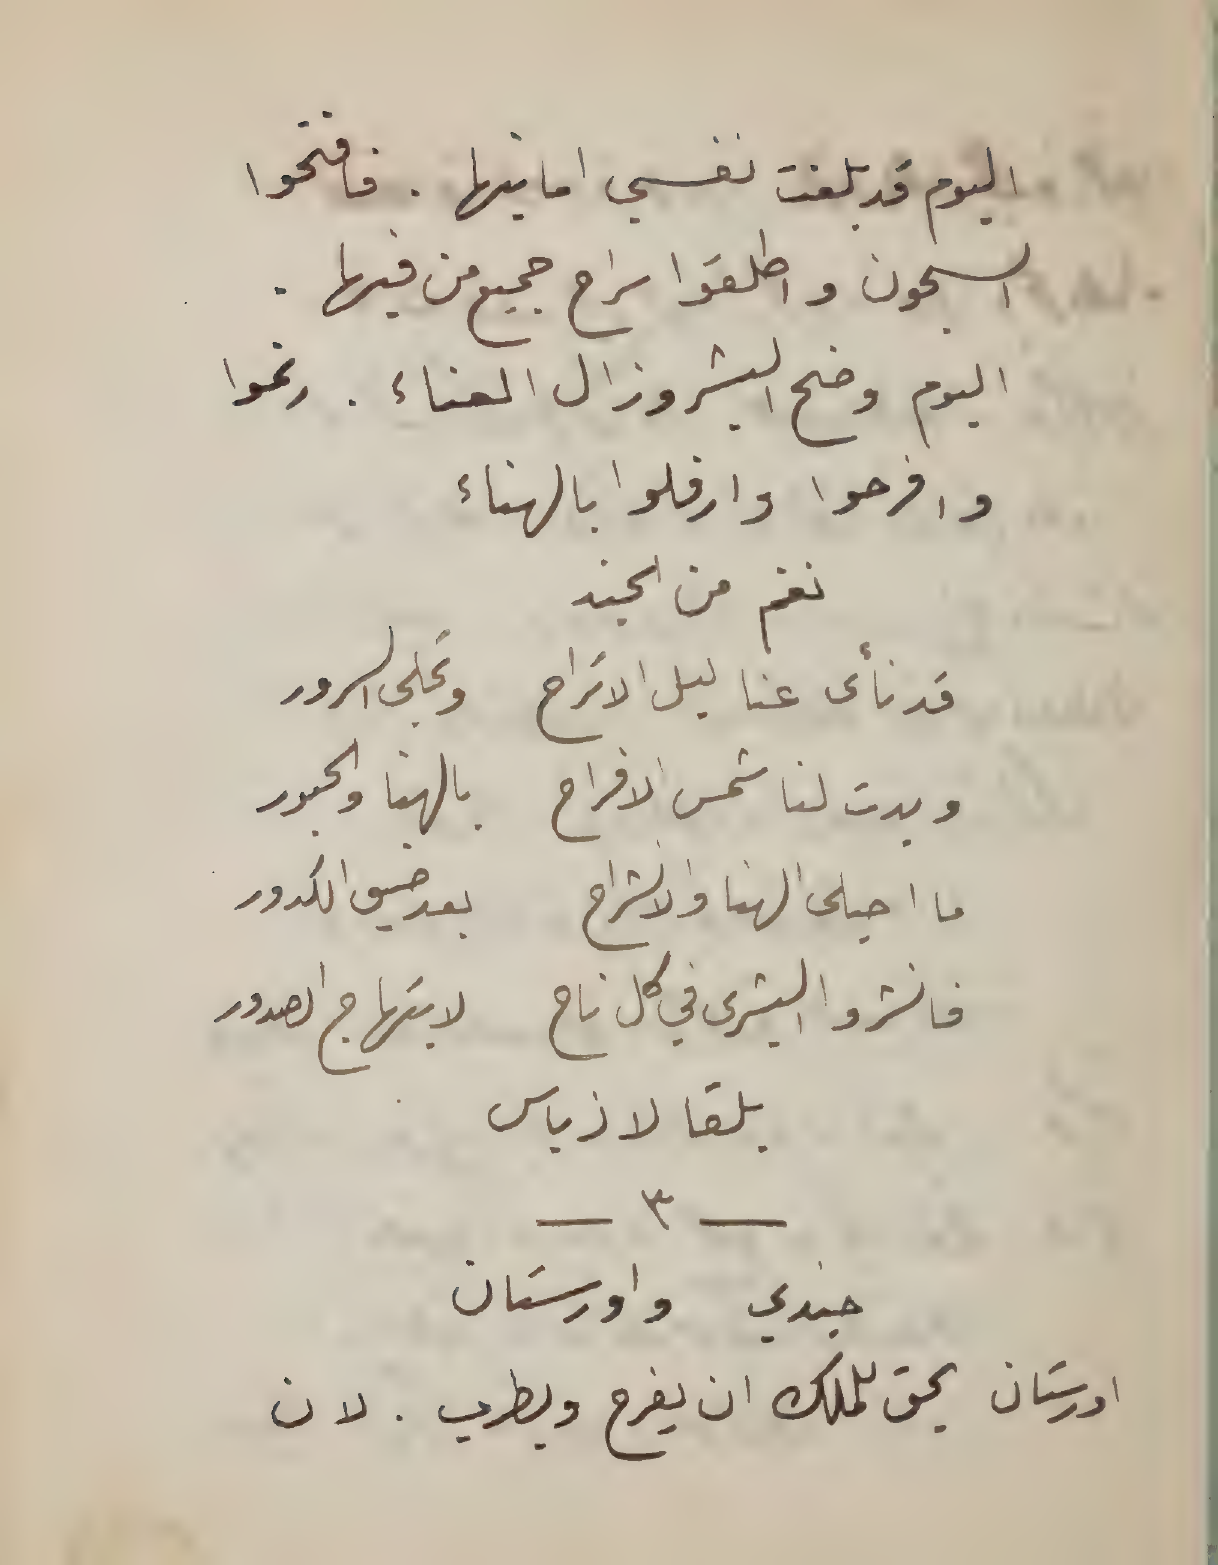 اليوم قد بلغت نفسي امانيها . فافتحوا
السجون واطلقوا سراح جميع من فيها .
اليوم وضح البشر وزال العناء . رنموا
وافرحوا وارفلوا بالهناء
نغم من الجند
قد نأى عنا ليل الاتراح وتجلى السرور
وبدت لنا شمس الافراح بالهنا والحبور
ما احيلى الهنا والانشراح بعد ضيق الكدور
فانشروا البشرى في كل ناح لابتهاج الصدور
يلقا لاذياس
— ٣ —
جندي واورستان
اورستان يحق للملك ان يفرح ويطرب . لان